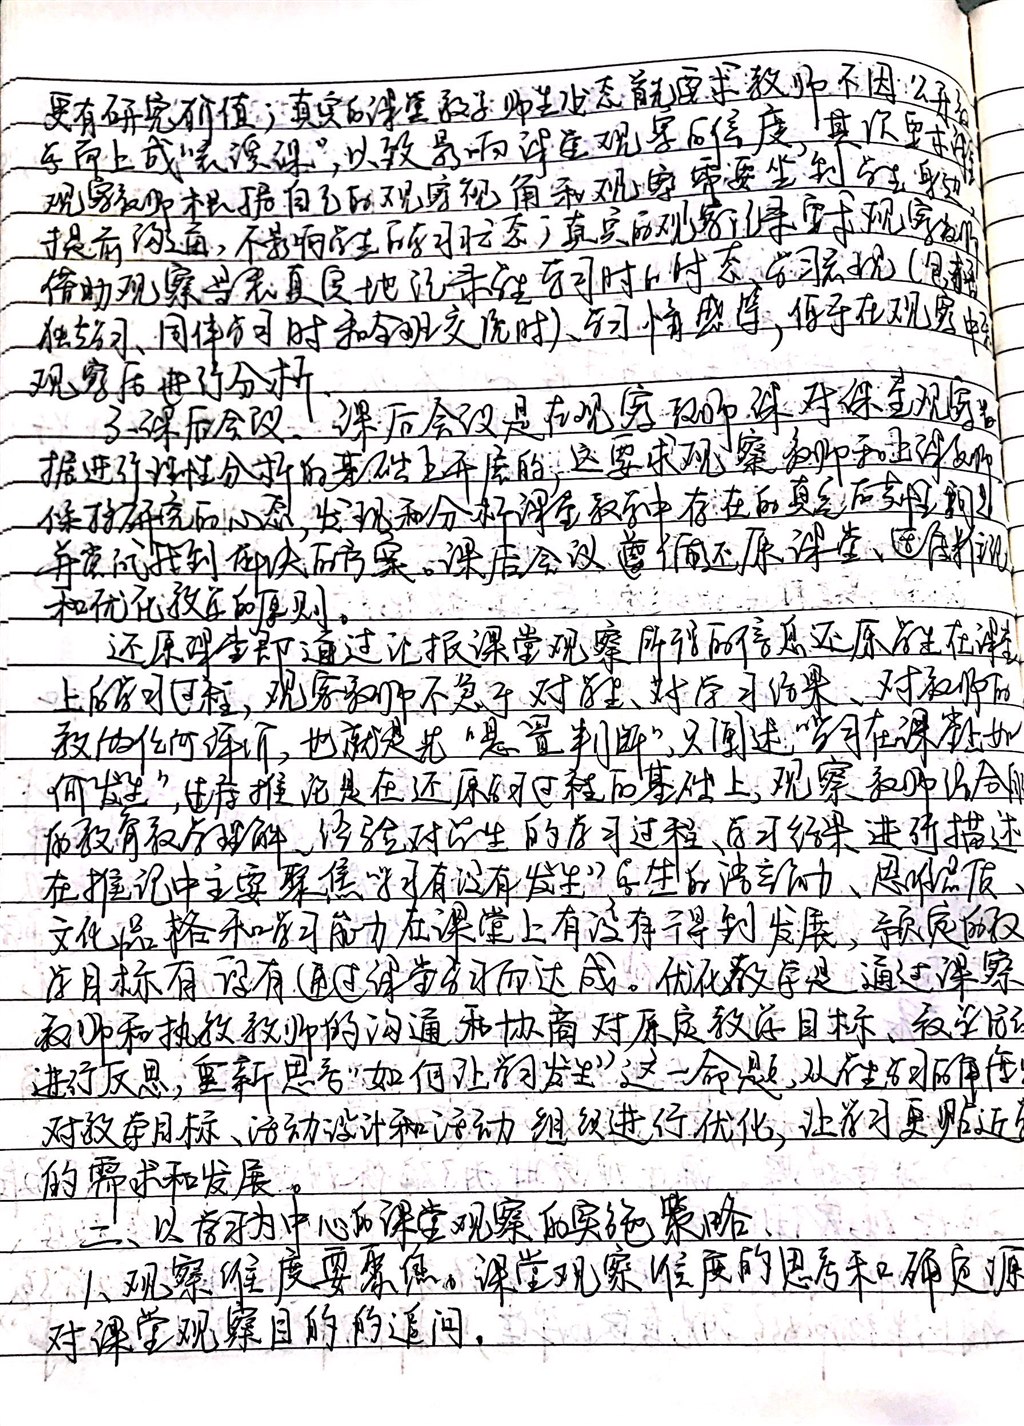 更有研究价值；真实的课堂教学师生状态首先要求教师不因公开教
学而上成“表演课”，以致影响课堂观察的信度，其次要求课堂
观察教师根据自己的观察视角和观察需要坐到学生身边
提前沟通，不影响学生的学习状态；真实的观察记录要求观察教师
借助观察量表真实地记录学生学习时的时态、学习表现（包括
独立学习、同伴学习时和全班交流时）、学习情感等，便于在观察中和
观察后进行分析。
3、课后会议。课后会议是在观察教师课对课堂观察数
据进行理性分析的基础上开展的，这要求观察教师和上课教师
保持研究的心态，发现和分析课堂教学中存在的真实而典型问题
并尝试找到解决的方案。课后会议遵循还原课堂、适度推论
和优化教学的原则。
还原课堂即通过汇报课堂观察所得的信息还原学生在课堂
上的学习过程，观察教师不急于对学生、对学习结果、对教师的
教做任何评价，也就是先“悬置判断”，只阐述“学习在课堂上如
何发生”，适度推论是在还原学习过程的基础上，观察教师结合自
的教育教学理解、经验对学生的学习过程、学习结果进行描述
在推论中主要聚焦“学习有没有发生”学生的语言能力、思维品质、
文化品格和学习能力在课堂上有没有得到发展，预定的教
学目标有没有通过课堂学习而达成。优化教学是通过课察
教师和执教教师的沟通和协商对原定教学目标、教学活动
进行反思，重新思考“如何让学习发生”这一命题，从学生学习的角度
对教学目标、活动设计和活动组织进行优化，让学习更贴近学
的需求和发展。
二、以学习为中心的课堂观察的实施策略
1、观察维度要聚焦。课堂观察维度的思考和确定源
对课堂观察目的的追问。